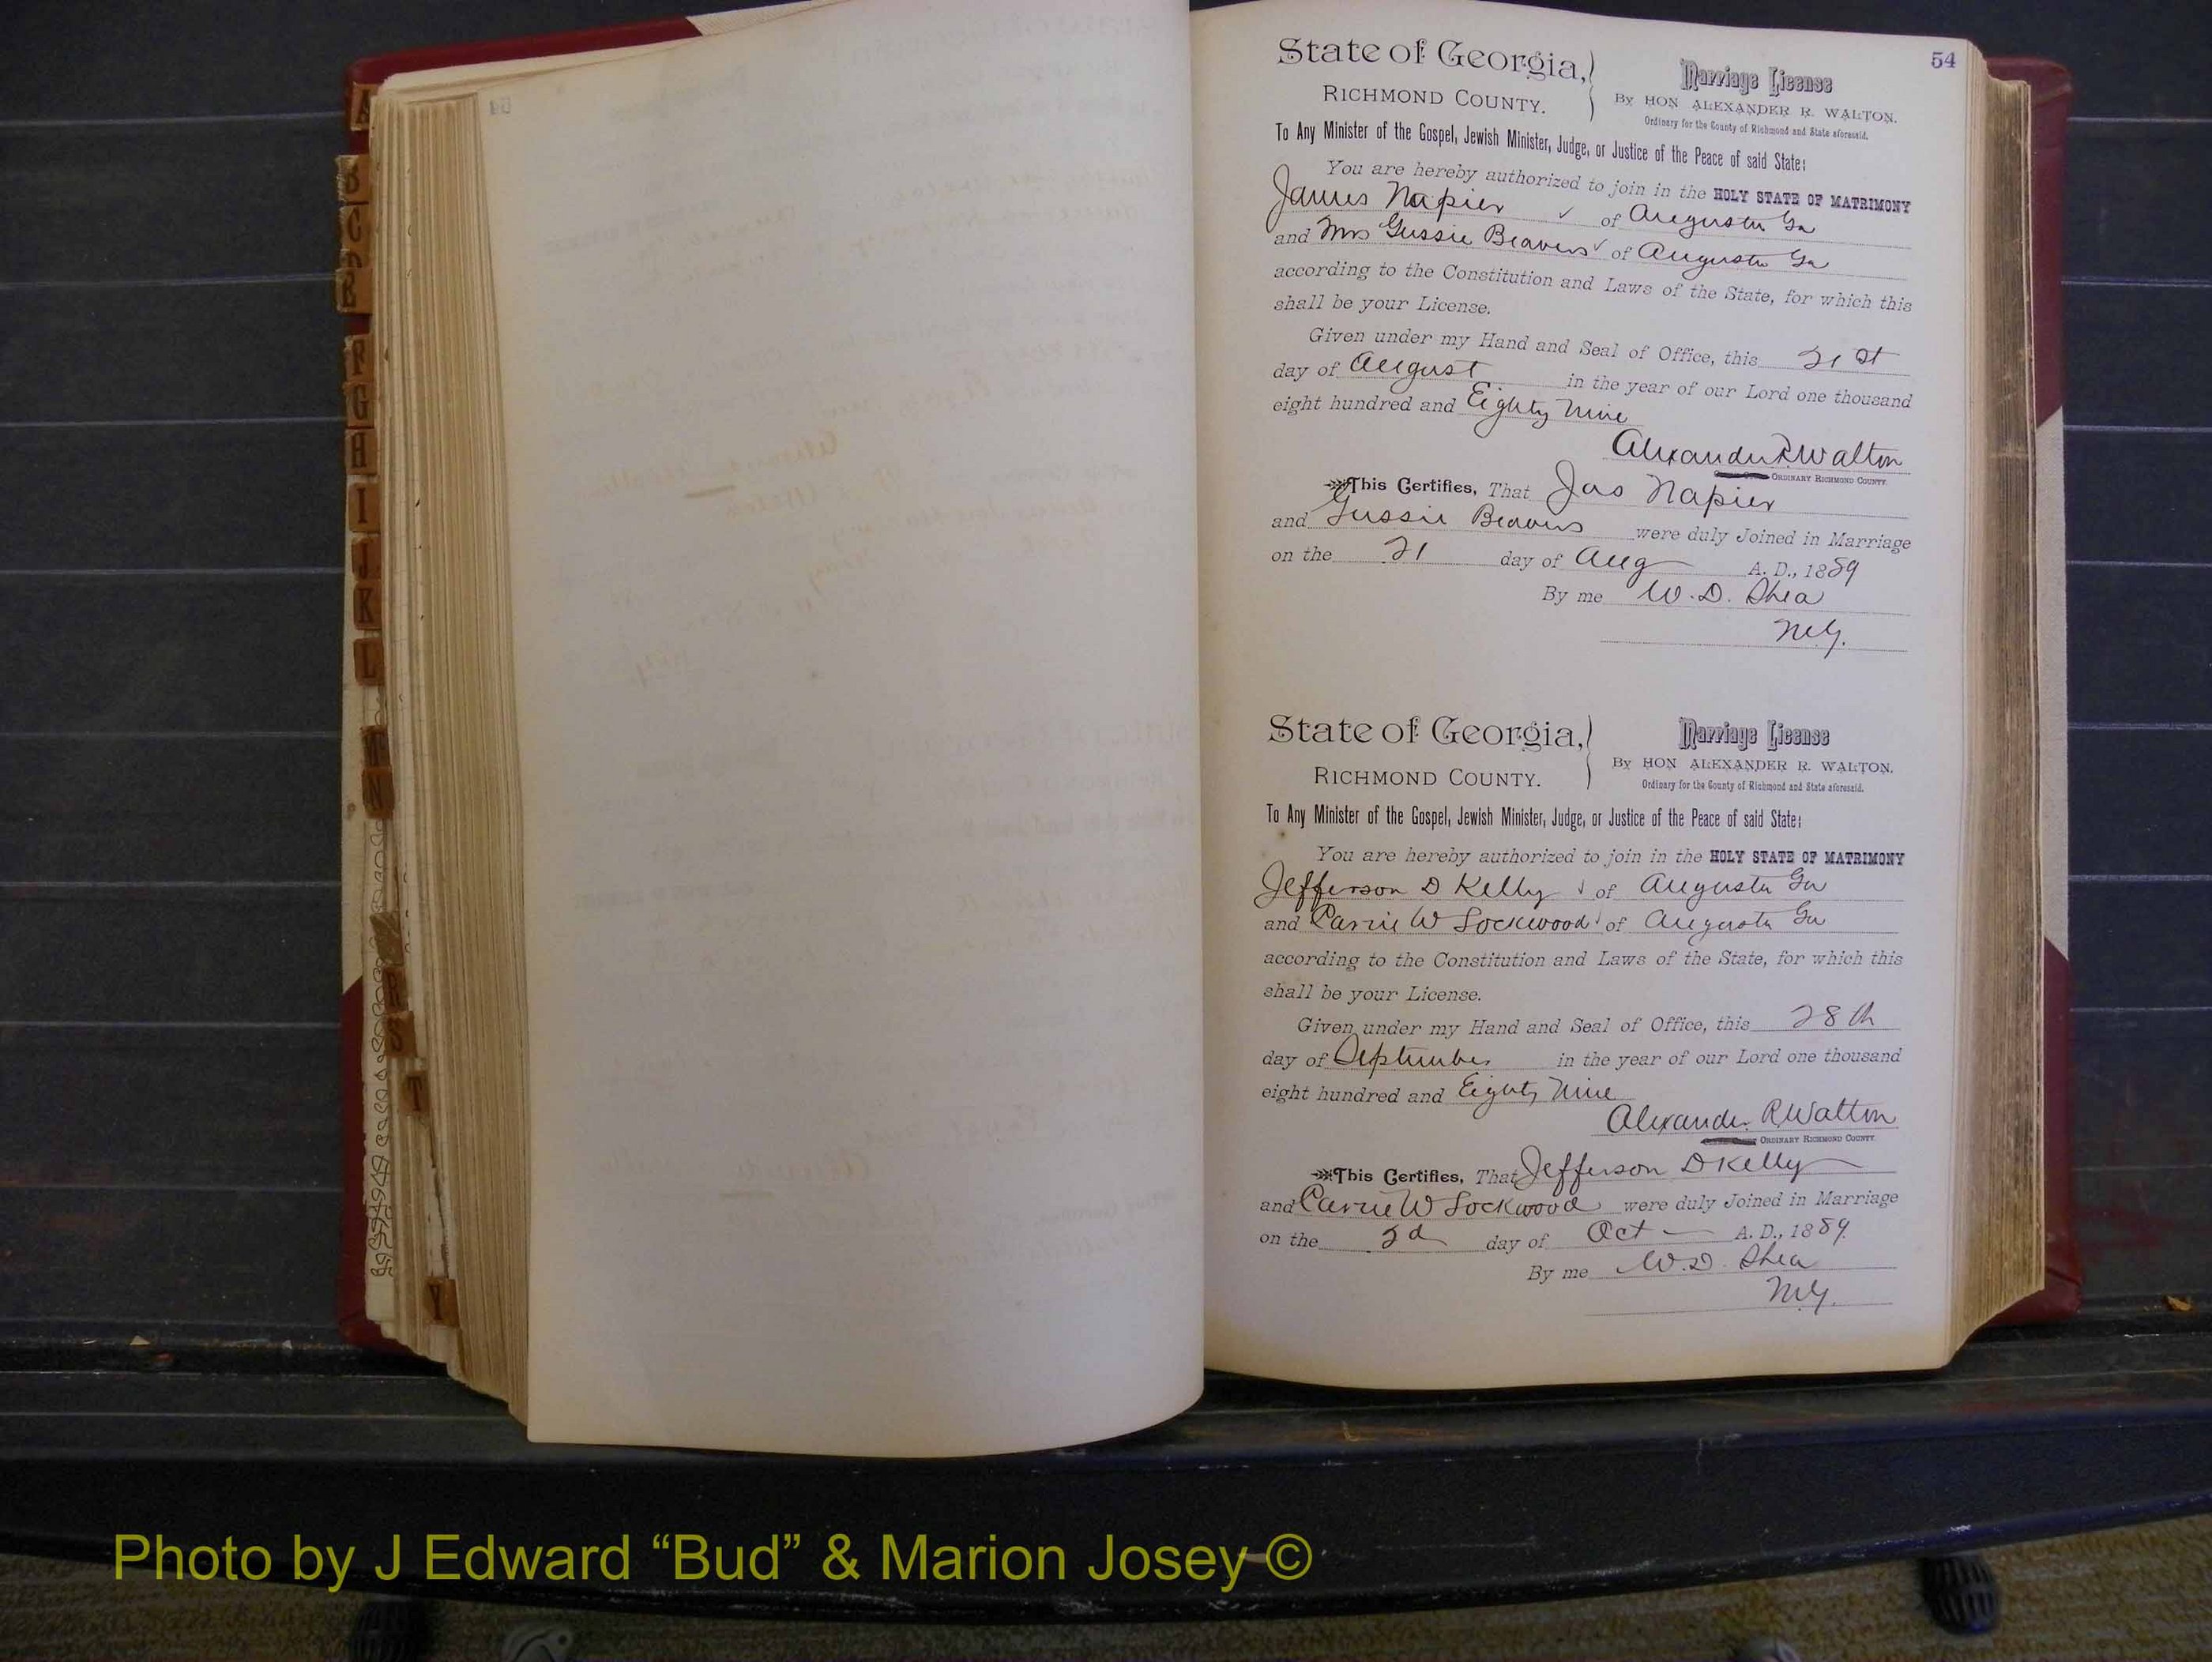 54
State of Georgia,
RICHMOND COUNTY.
Marriage License
By HON ALEXANDER R. WALTON.
Ordinary for the County of Richmond and State aforesaid.
To Any Minister of the Gospel, Jewish Minister, Judge, or Justice of the Peace of said State:
You are hereby authorized to join in the HOLY STATE OF MATRIMONY
James Napier ✓ of Augusta Ga
and Mrs Gussie Beavers ✓ of Augusta Ga
according to the Constitution and Laws of the State, for which this
shall be your License.
Given under my Hand and Seal of Office, this 21st
day of August in the year of our Lord one thousand
eight hundred and Eighty Nine
Alexander R Walton
ORDINARY RICHMOND COUNTY.
This Certifies, That Jas Napier
and Gussie Beavers were duly Joined in Marriage
on the 21 day of Aug A. D., 1889
By me W. D. Shea
M.G.
State of Georgia,
RICHMOND COUNTY.
Marriage License
By HON ALEXANDER R. WALTON.
Ordinary for the County of Richmond and State aforesaid.
To Any Minister of the Gospel, Jewish Minister, Judge, or Justice of the Peace of said State:
You are hereby authorized to join in the HOLY STATE OF MATRIMONY
Jefferson D Kelly ✓ of Augusta Ga
and Carrie W Lockwood ✓ of Augusta Ga
according to the Constitution and Laws of the State, for which this
shall be your License.
Given under my Hand and Seal of Office, this 28th
day of September in the year of our Lord one thousand
eight hundred and Eighty Nine
Alexander R Walton
ORDINARY RICHMOND COUNTY.
This Certifies, That Jefferson D Kelly
and Carrie W Lockwood were duly Joined in Marriage
on the 2d day of Oct A. D., 1889.
By me W. D. Shea
M.G.
A
B
C
F
G
H
I
J
K
L
N
R
S
T
Y
Photo by J Edward “Bud” & Marion Josey ©